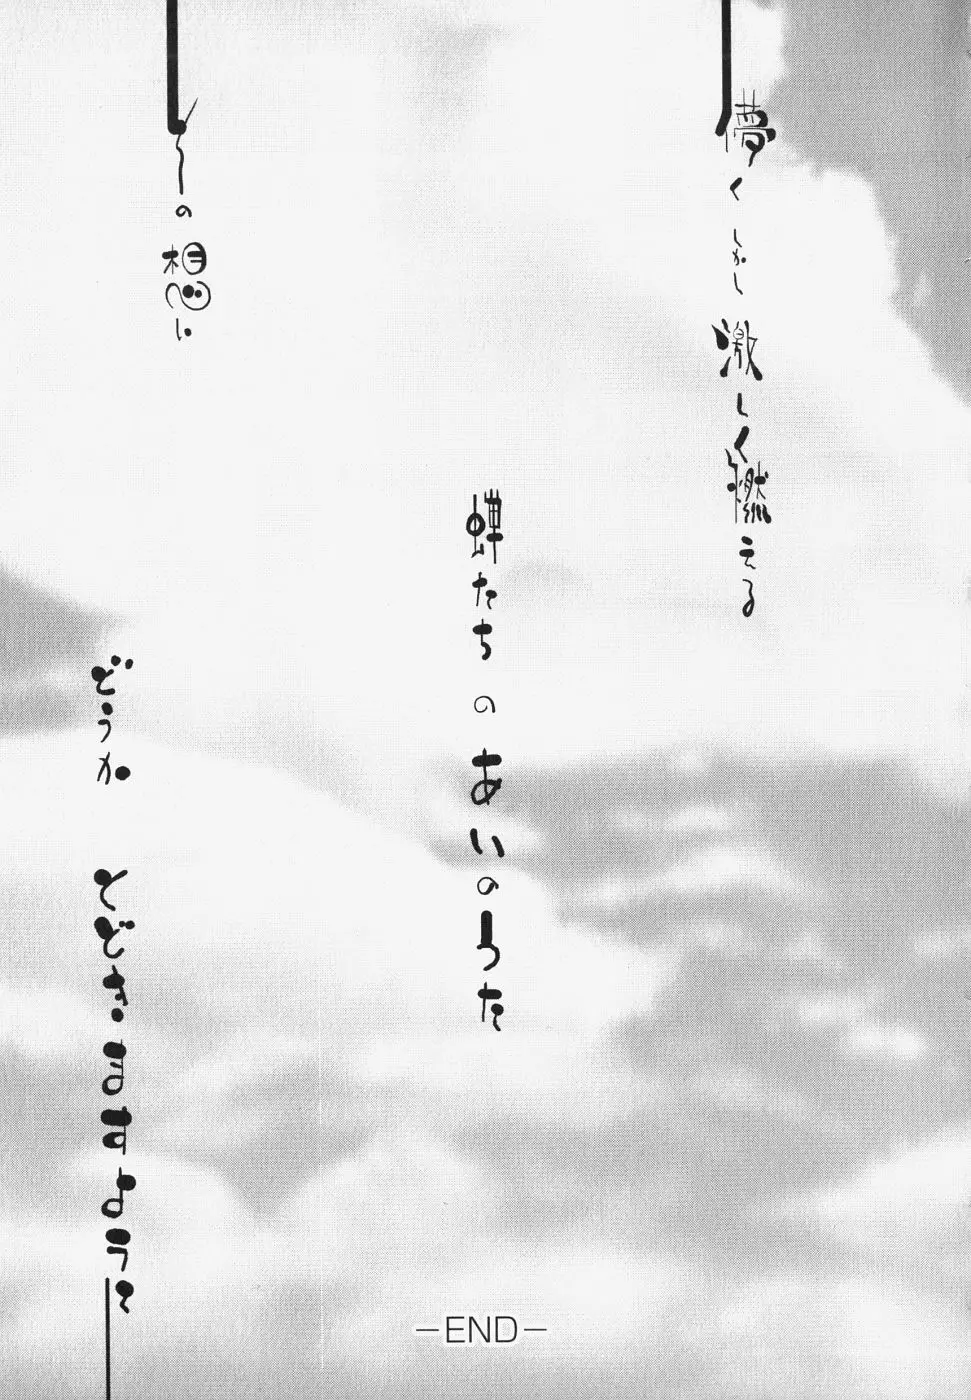 儚くしかし激しく燃える
蝉たちのあいのうた
その想い
どうか とどきますように
-END-